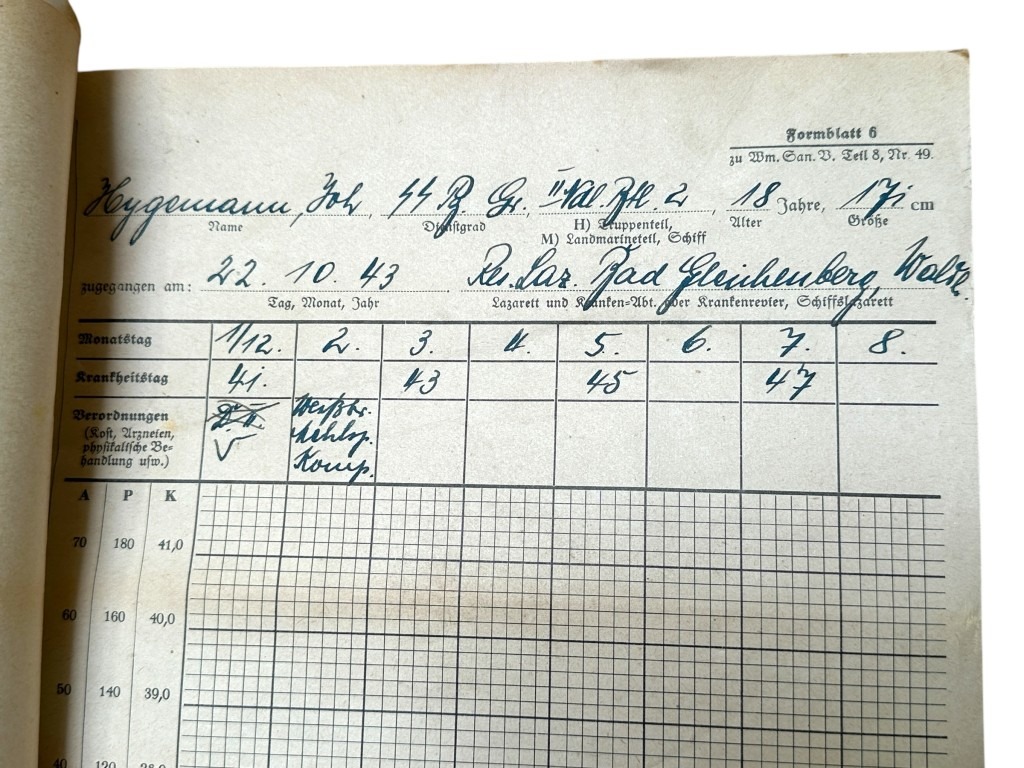 Formblatt 6
zu Wm. San. V. Teil 8, Nr. 49.
Hygemann, Joh, SS Pz. Gr., II 18 Jahre, 171 cm
Name Dienstgrad H) Truppenteil, Alter Größe
M) Landmarineteil, Schiff
zugegangen am: 22. 10. 43 Res. Laz. Bad Gleichenberg,
Tag, Monat, Jahr Lazarett und Kranken-Abt. oder Krankenrevier, Schiffslazarett
Monatstag 1/12. 2. 3. 4. 5. 6. 7. 8.
Krankheitstag 41. 43 45 47
Verordnungen
(Kost, Arzneien,
physikalische Be-
handlung usw.)
Weißbr.
Komp.
A P K
70 180 41,0
60 160 40,0
50 140 39,0
40 120 38,0